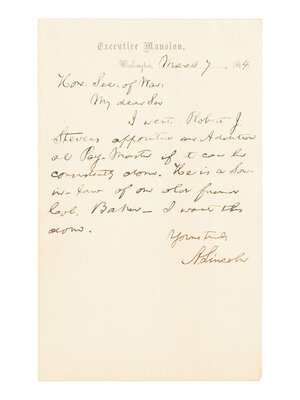 Executive Mansion,
Washington, March 7, 1864
Hon. Sec. of War.
My dear Sir
I want Robert J.
Stevens appointed an Addition
al Pay-Master if it can be
consistently done. He is a son-
in-law of our old friend
Col. Baker— I want this
done.
Yours truly
A. Lincoln